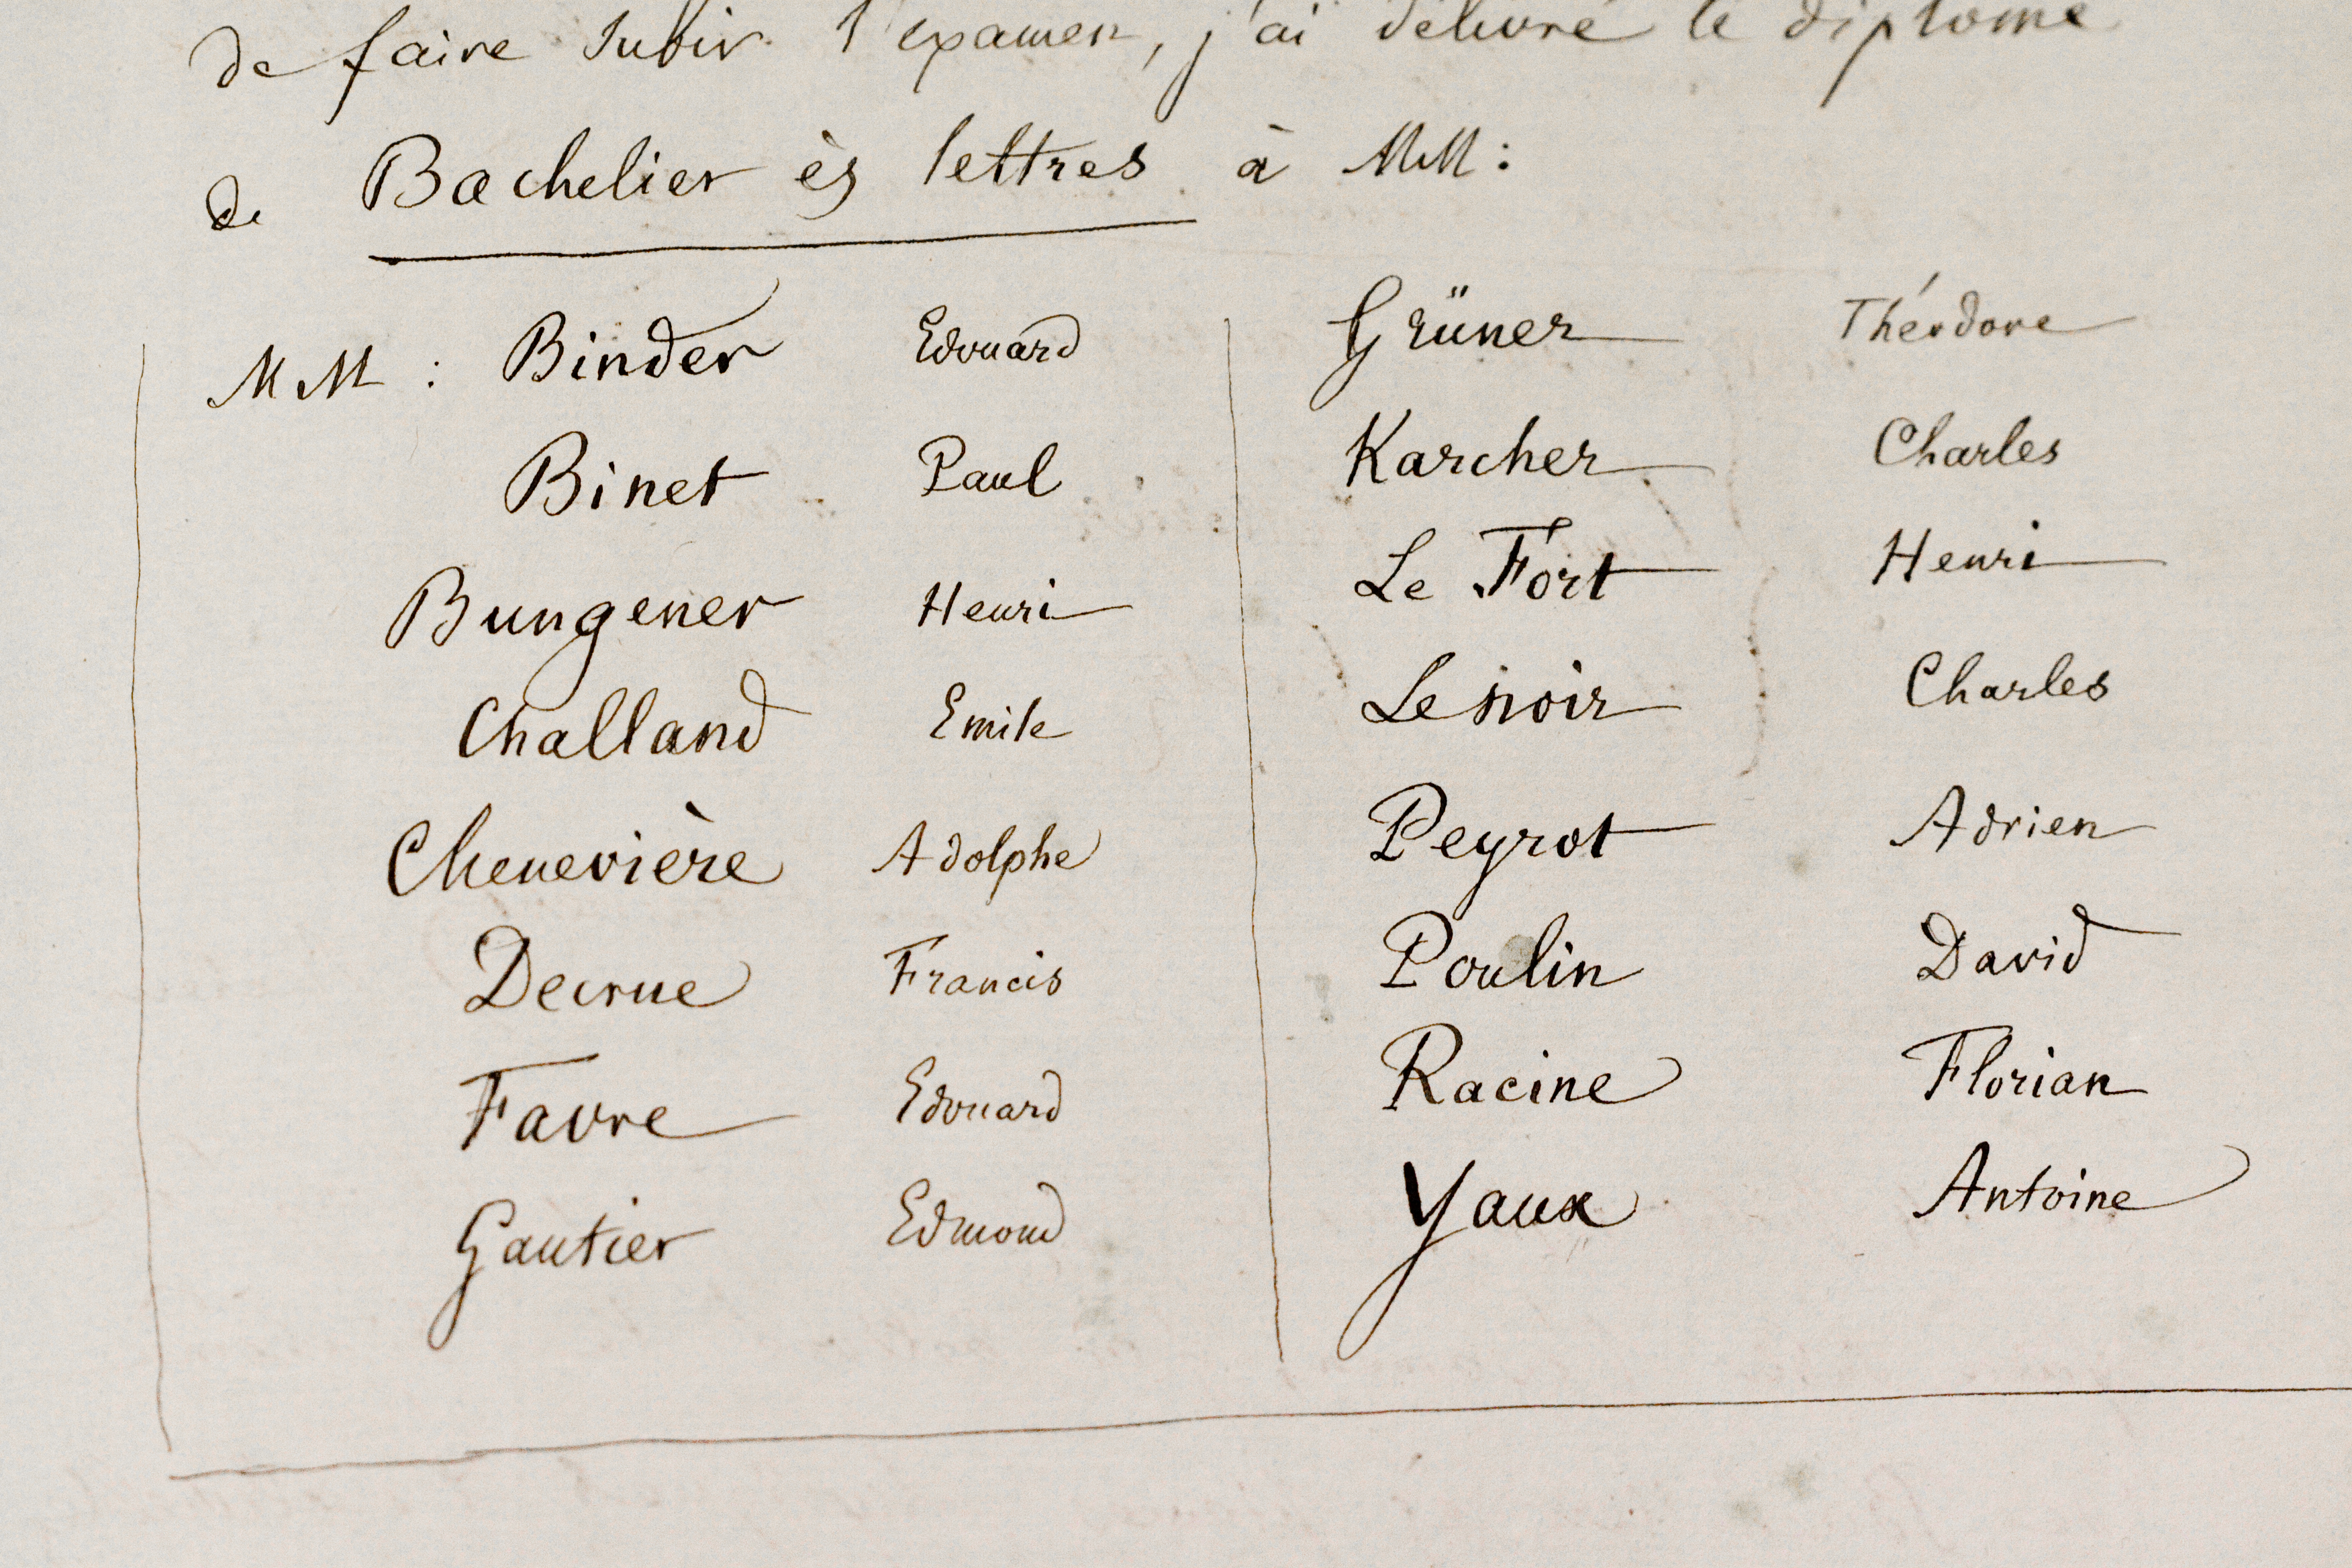 de faire subir l'examen, j'ai délivré le diplome
de Bachelier ès lettres à MM:
MM : Binder Edouard
Binet Paul
Bungener Henri
Challand Emile
Chenevière Adolphe
Decrue Francis
Favre Edouard
Gautier Edmond
Grüner Théodore
Karcher Charles
Le Fort Henri
Lenoir Charles
Peyrot Adrien
Poulin David
Racine Florian
Yaux Antoine